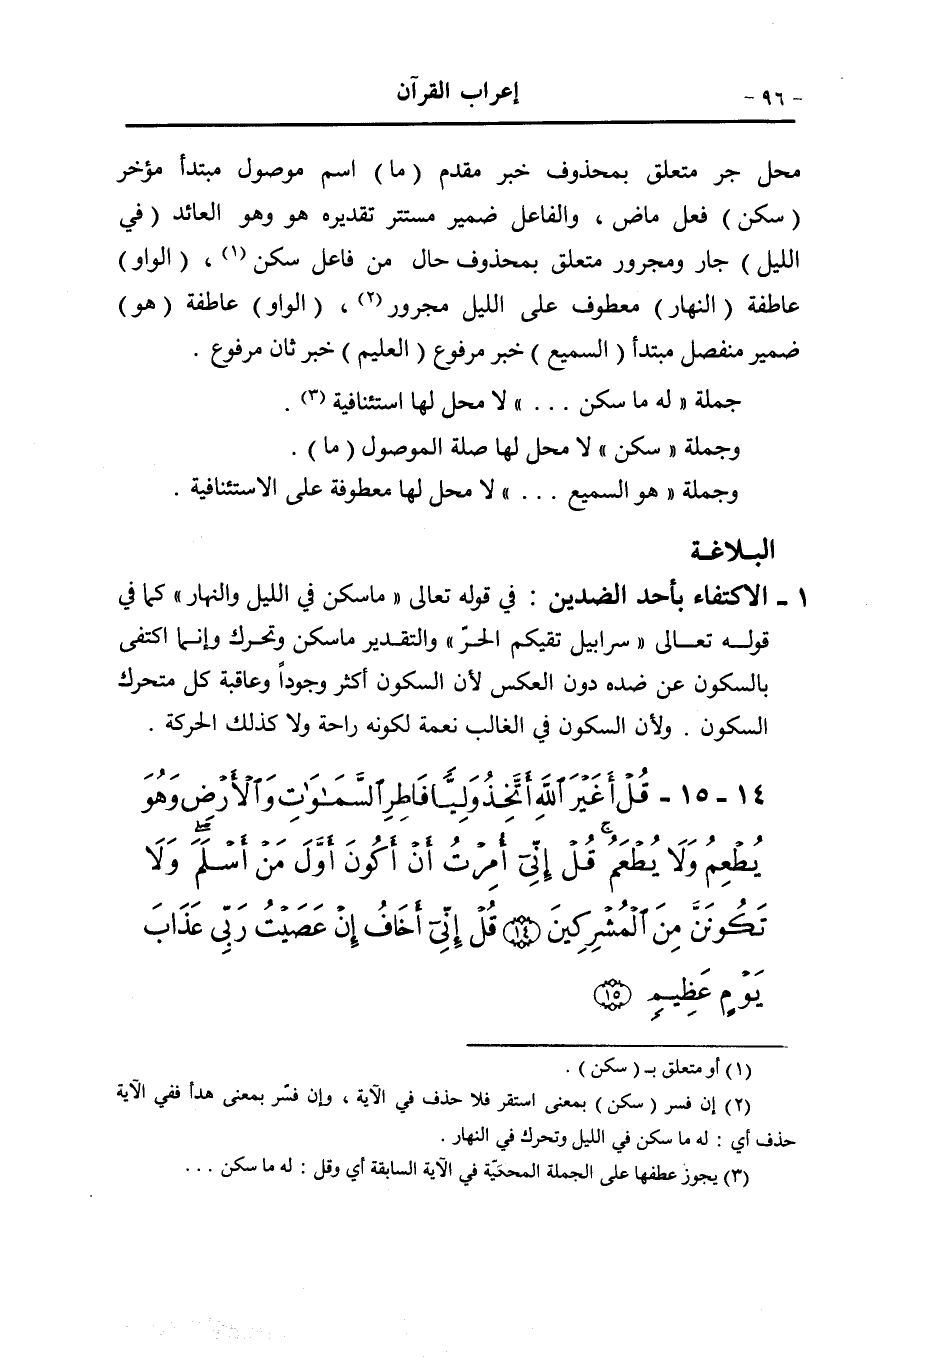 - ٩٦ -
إعراب القرآن
محل جر متعلق بمحذوف خبر مقدم ( ما ) اسم موصول مبتدأ مؤخر
( سكن ) فعل ماض ، والفاعل ضمير مستتر تقديره هو وهو العائد ( في
الليل ) جار ومجرور متعلق بمحذوف حال من فاعل سكن (١) ، ( الواو )
عاطفة ( النهار ) معطوف على الليل مجرور (٢) ، ( الواو ) عاطفة ( هو )
ضمير منفصل مبتدأ ( السميع ) خبر مرفوع ( العليم ) خبر ثان مرفوع .
جملة « له ما سكن . . . » لا محل لها استئنافية (٣) .
وجملة « سكن » لا محل لها صلة الموصول ( ما ) .
وجملة « هو السميع . . . » لا محل لها معطوفة على الاستئنافية .
البلاغة
١ - الاكتفاء بأحد الضدين : في قوله تعالى « ماسكن في الليل والنهار » كما في
قوله تعالى « سرابيل تقيكم الحرّ » والتقدير ماسكن وتحرك وإنما اكتفى
بالسكون عن ضده دون العكس لأن السكون أكثر وجوداً وعاقبة كل متحرك
السكون . ولأن السكون في الغالب نعمة لكونه راحة ولا كذلك الحركة .
١٤ - ١٥ - قُلْ أَغَيْرَ ٱللَّهِ أَتَّخِذُ وَلِيًّا فَاطِرِ ٱلسَّمَـٰوَٰتِ وَٱلْأَرْضِ وَهُوَ
يُطْعِمُ وَلَا يُطْعَمُ ۗ قُلْ إِنِّىٓ أُمِرْتُ أَنْ أَكُونَ أَوَّلَ مَنْ أَسْلَمَ ۖ وَلَا
تَكُونَنَّ مِنَ ٱلْمُشْرِكِينَ ﴿١٤﴾ قُلْ إِنِّىٓ أَخَافُ إِنْ عَصَيْتُ رَبِّى عَذَابَ
يَوْمٍ عَظِيمٍ ﴿١٥﴾
(١) أو متعلق بـ ( سكن ) .
(٢) إن فسر ( سكن ) بمعنى استقر فلا حذف في الآية ، وإن فسّر بمعنى هدأ ففي الآية
حذف أي : له ما سكن في الليل وتحرك في النهار .
(٣) يجوز عطفها على الجملة المحكيّة في الآية السابقة أي وقل : له ما سكن . . .